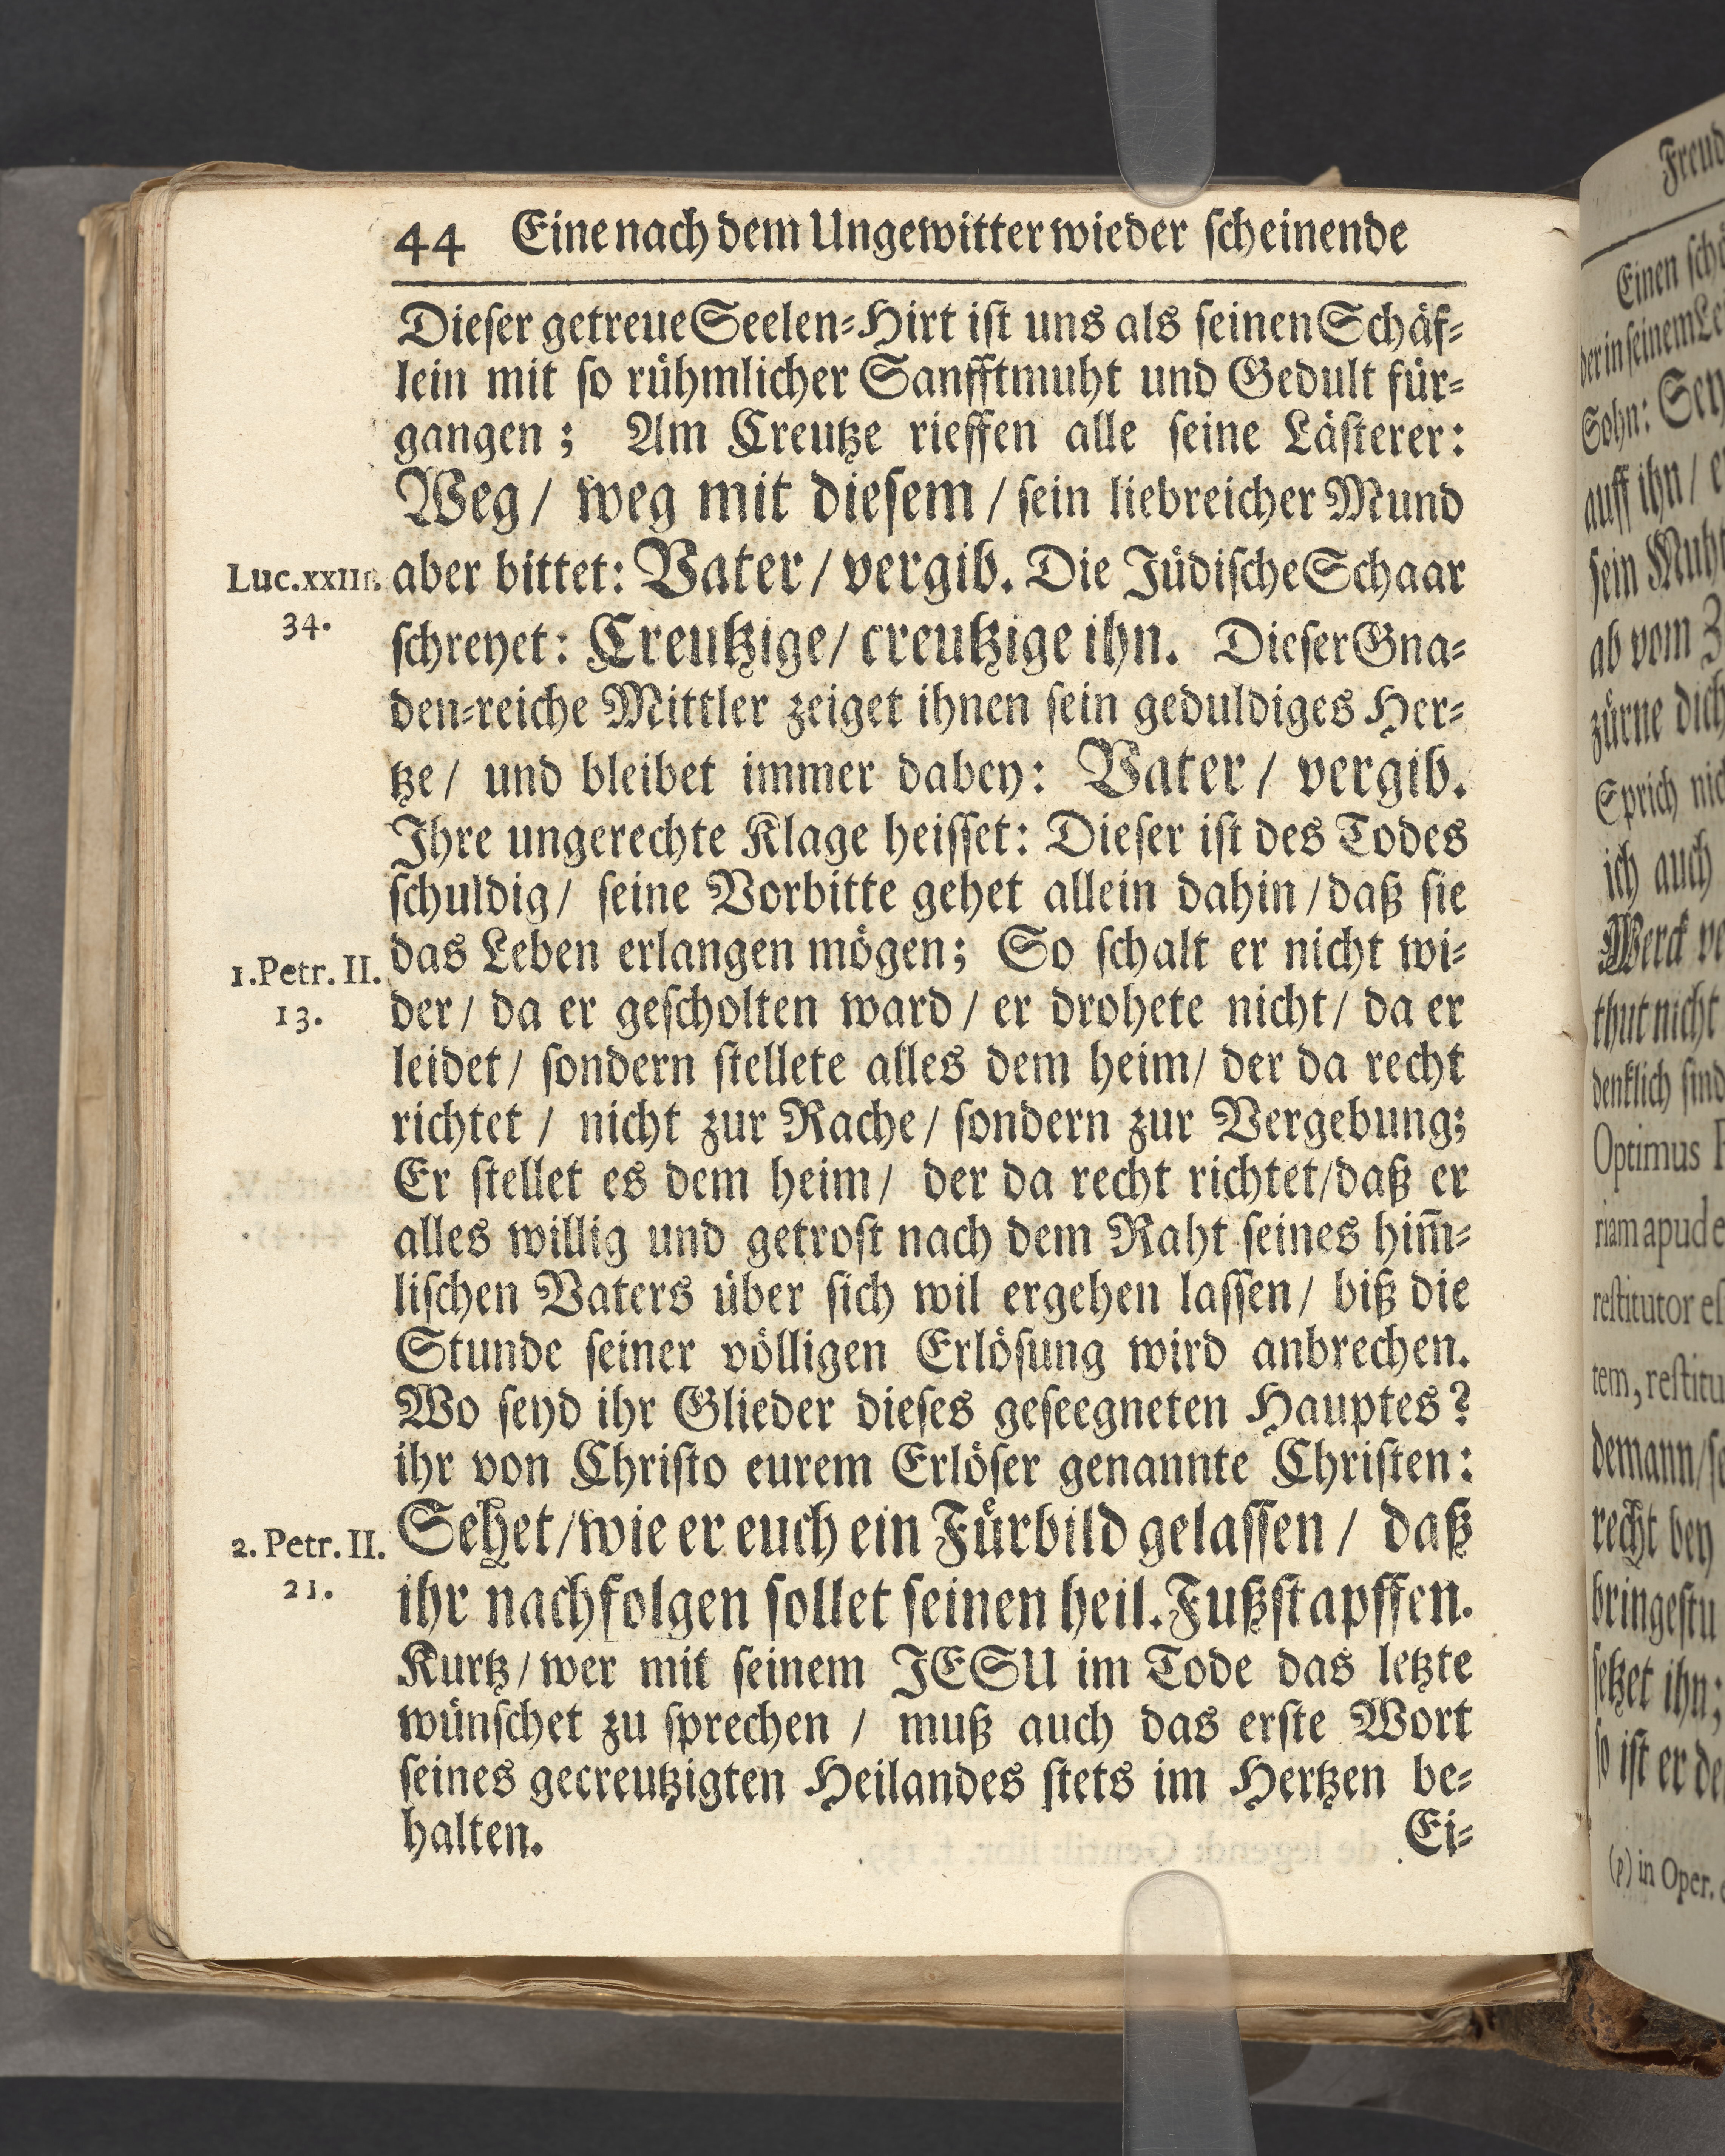 44 Eine nach dem Ungewitter wieder ſcheinende
Dieſer getreue Seelen-Hirt iſt uns als ſeinen Schäf-
lein mit ſo rühmlicher Sanfftmuht und Gedult für-
gangen; Am Creutze rieffen alle ſeine Läſterer:
Weg/ weg mit dieſem/ ſein liebreicher Mund
Luc.xxIII.
34.
aber bittet: Vater/ vergib. Die Jüdiſche Schaar
ſchreyet: Creutzige/ creutzige ihn. Dieſer Gna-
den-reiche Mittler zeiget ihnen ſein geduldiges Her-
tze/ und bleibet immer dabey: Vater/ vergib.
Ihre ungerechte Klage heiſſet: Dieſer iſt des Todes
ſchuldig/ ſeine Vorbitte gehet allein dahin/ daß ſie
1.Petr. II.
13.
das Leben erlangen mögen; So ſchalt er nicht wi-
der/ da er geſcholten ward/ er drohete nicht/ da er
leidet/ ſondern ſtellete alles dem heim/ der da recht
richtet/ nicht zur Rache/ ſondern zur Vergebung;
Er ſtellet es dem heim/ der da recht richtet/ daß er
alles willig und getroſt nach dem Raht ſeines him̃-
liſchen Vaters über ſich wil ergehen laſſen/ biß die
Stunde ſeiner völligen Erlöſung wird anbrechen.
Wo ſeyd ihr Glieder dieſes geſeegneten Hauptes?
ihr von Chriſto eurem Erlöſer genannte Chriſten:
2. Petr. II.
21.
Sehet/ wie er euch ein Fürbild gelaſſen/ daß
ihr nachfolgen ſollet ſeinen heil. Fußſtapffen.
Kurtz/ wer mit ſeinem JESU im Tode das letzte
wünſchet zu ſprechen/ muß auch das erſte Wort
ſeines gecreutzigten Heilandes ſtets im Hertzen be-
halten.
Ei-
Einen
der in ſeinem
Sohn:
auff ihn/
ſein
ab vom
zürne dich
Sprich
ich auch
Werck
thut nicht
dencklich ſind
Optimus
riam apud
reſtitutor
tem,
demann/
recht bey
bringeſtu
ſetzet ihn;
ſo iſt er
(p) in Oper.